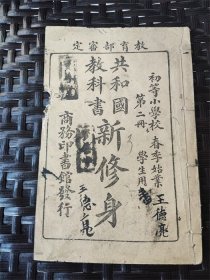 教育部審定
初等小學校 春季始業
第二冊 學生用書
共和國
教科書
新修身
商務印書館發行
王德亮
王德亮